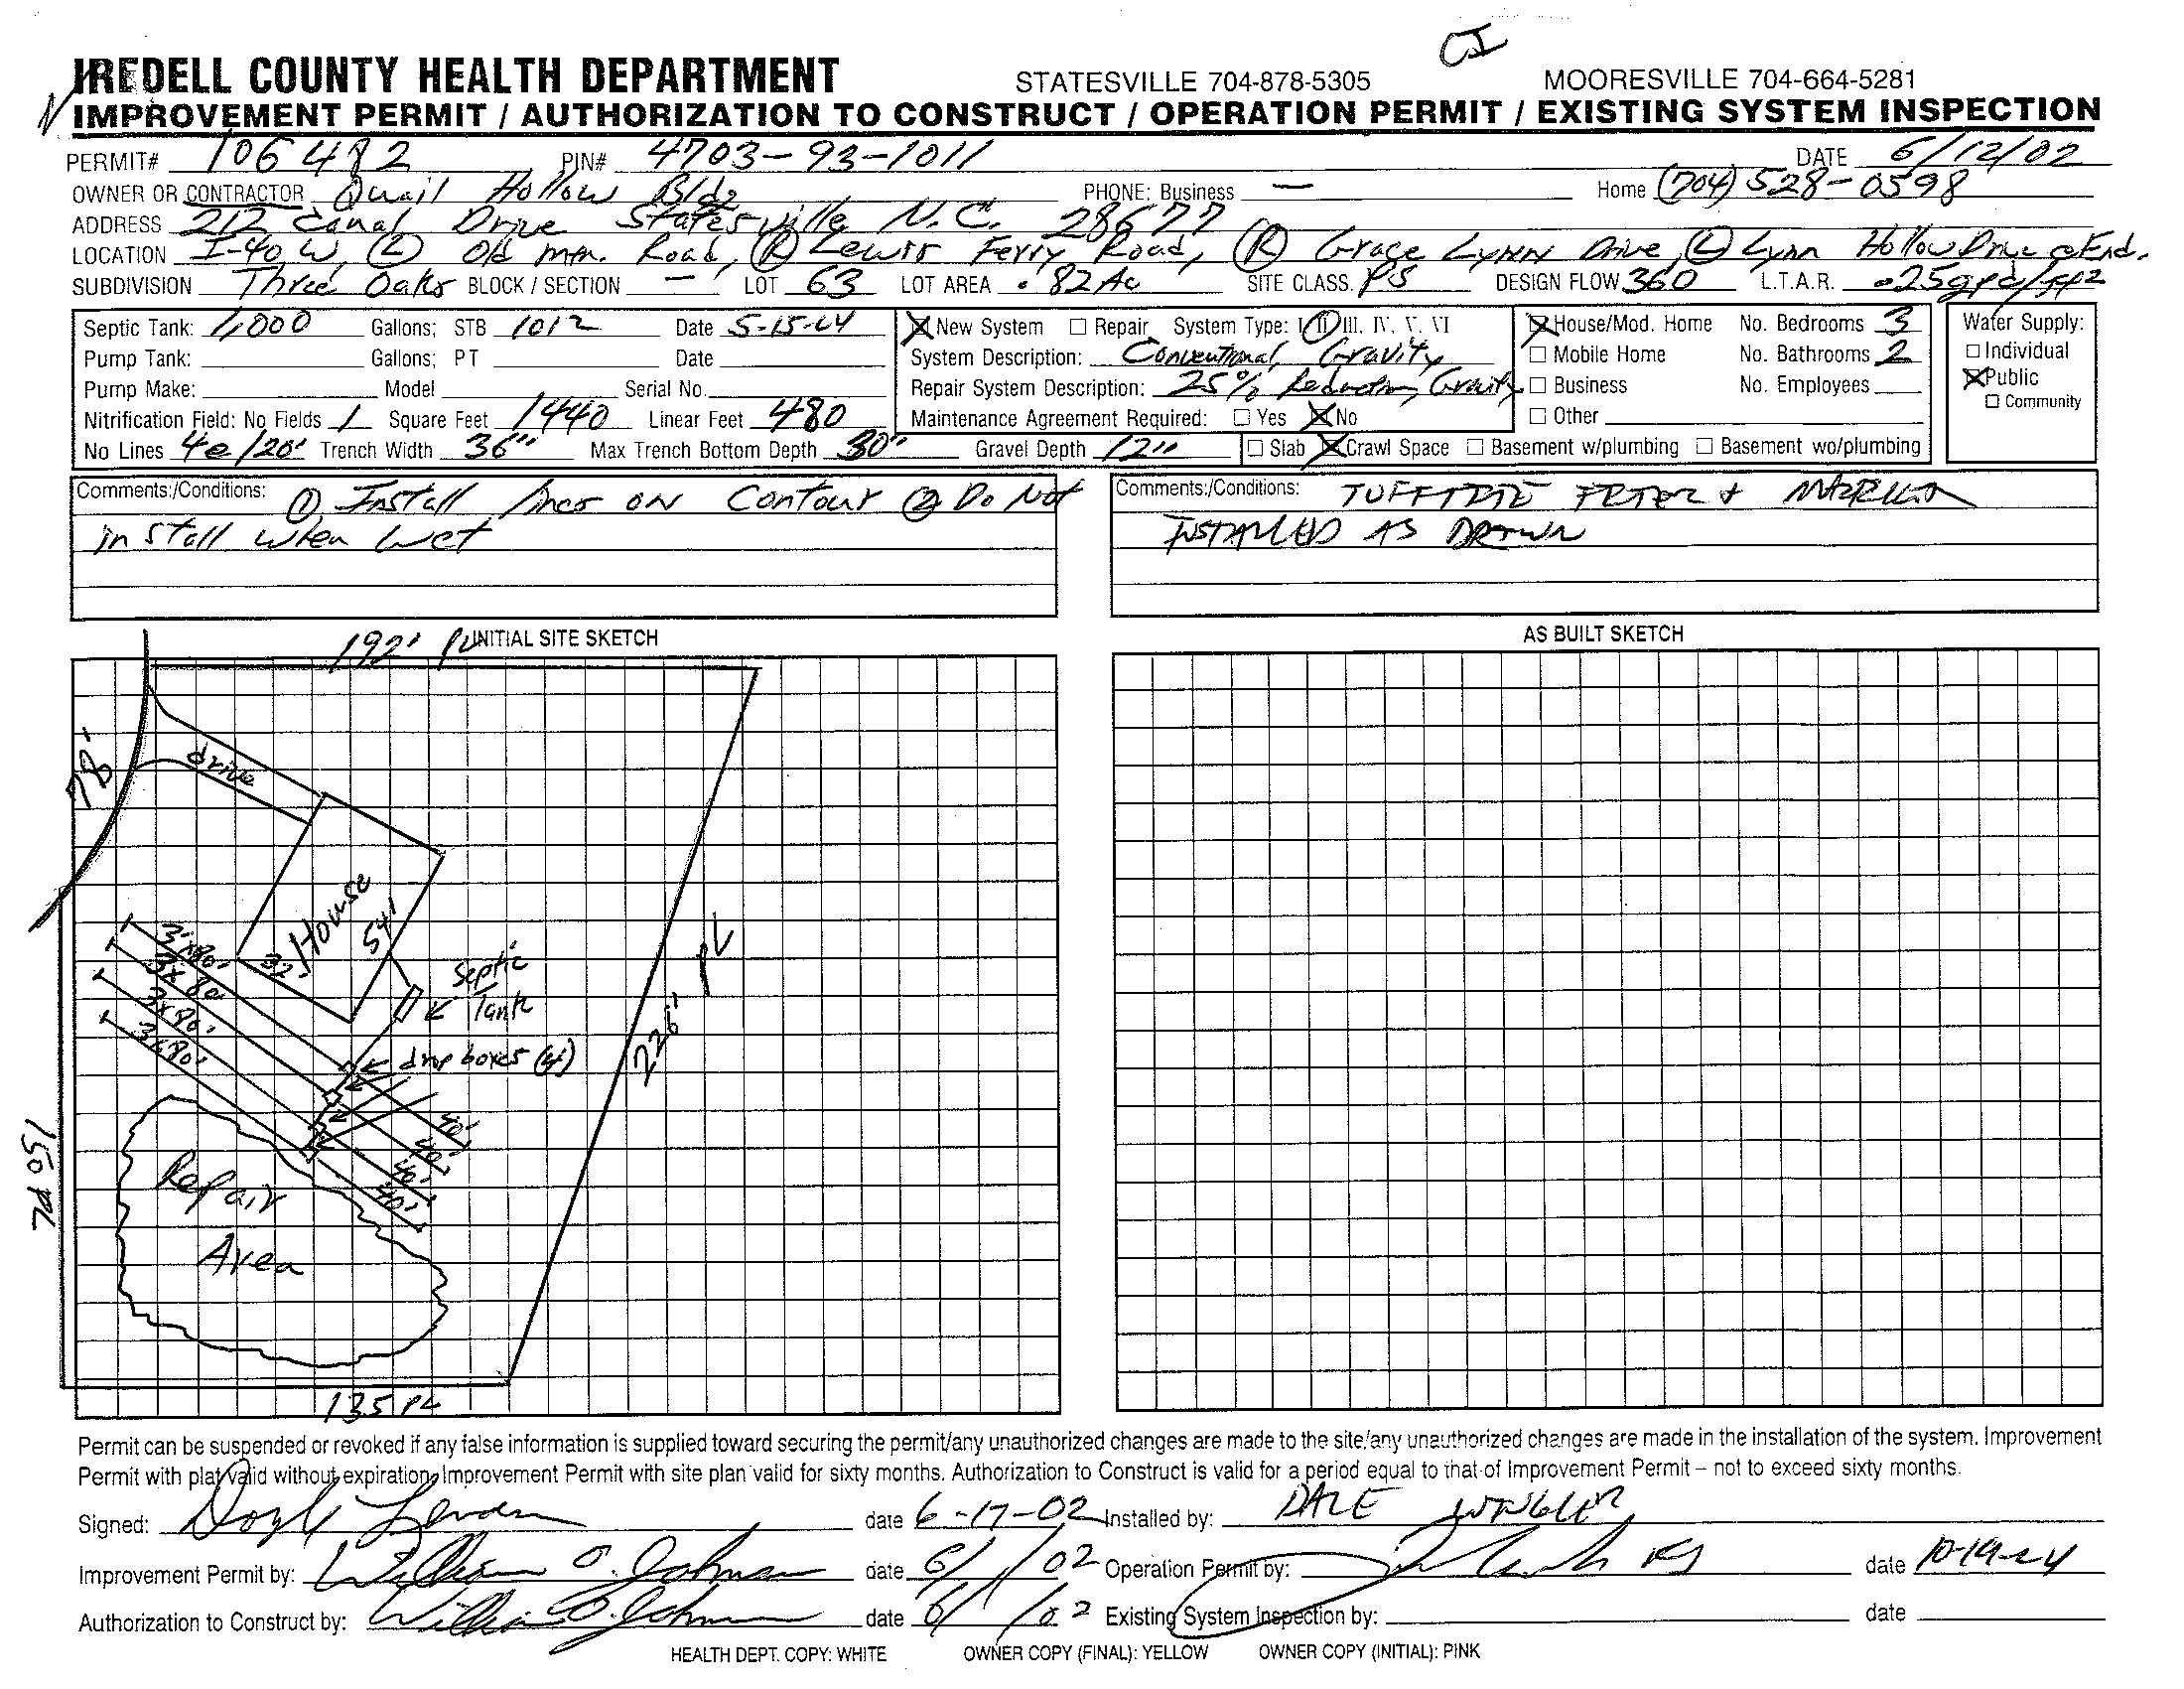 CI
IREDELL COUNTY HEALTH DEPARTMENT STATESVILLE 704-878-5305 MOORESVILLE 704-664-5281
N IMPROVEMENT PERMIT / AUTHORIZATION TO CONSTRUCT / OPERATION PERMIT / EXISTING SYSTEM INSPECTION
PERMIT# 106482 PIN# 4703-93-1011 DATE 6/12/02
OWNER OR CONTRACTOR Quail Hollow Bldg PHONE: Business — Home (704) 528-0598
ADDRESS 212 Canal Drive Statesville N.C. 28677
LOCATION I-40 W, (L) Old Mtn. Road, (R) Lewis Ferry Road, (R) Grace Lynn Drive, (L) Lynn Hollow Drive @ End.
SUBDIVISION Three Oaks BLOCK / SECTION — LOT 63 LOT AREA .82 Ac SITE CLASS. PS DESIGN FLOW 360 L.T.A.R. .25gpd/ft2
Septic Tank: 1,000 Gallons; STB 1012 Date 5-15-04 New System Repair System Type: I, II, III, IV, V, VI House/Mod. Home No. Bedrooms 3 Water Supply:
Pump Tank: Gallons; PT Date System Description: Conventional, Gravity Mobile Home No. Bathrooms 2 Individual
Pump Make: Model Serial No. Repair System Description: 25% Reduction, Gravity Business No. Employees Public
Nitrification Field: No Fields 1 Square Feet 1440 Linear Feet 480 Maintenance Agreement Required: Yes No Other Community
No Lines 4@120' Trench Width 36" Max Trench Bottom Depth 30" Gravel Depth 12" Slab Crawl Space Basement w/plumbing Basement wo/plumbing
Comments:/Conditions: ① Install lines on Contour ② Do Not
install when wet
Comments:/Conditions: TUFFTITE FILTER &
INSTALLED AS DRAWN
192' PL INITIAL SITE SKETCH AS BUILT SKETCH
drive
78'
House
54'
32'
3'x80'
3x80'
3x80'
3x80'
Septic
Tank
drop boxes (4)
226' PL
40'
40'
40'
40'
Repair
Area
150 PL
135 PL
Permit can be suspended or revoked if any false information is supplied toward securing the permit/any unauthorized changes are made to the site/any unauthorized changes are made in the installation of the system. Improvement
Permit with plat valid without expiration, Improvement Permit with site plan valid for sixty months. Authorization to Construct is valid for a period equal to that of Improvement Permit – not to exceed sixty months.
Signed: date 6-17-02 Installed by: DALE
Improvement Permit by: William O. Johnson date 6/ /02 Operation Permit by: date 10-19-04
Authorization to Construct by: William O. Johnson date 6/ /02 Existing System Inspection by: date
HEALTH DEPT. COPY: WHITE OWNER COPY (FINAL): YELLOW OWNER COPY (INITIAL): PINK